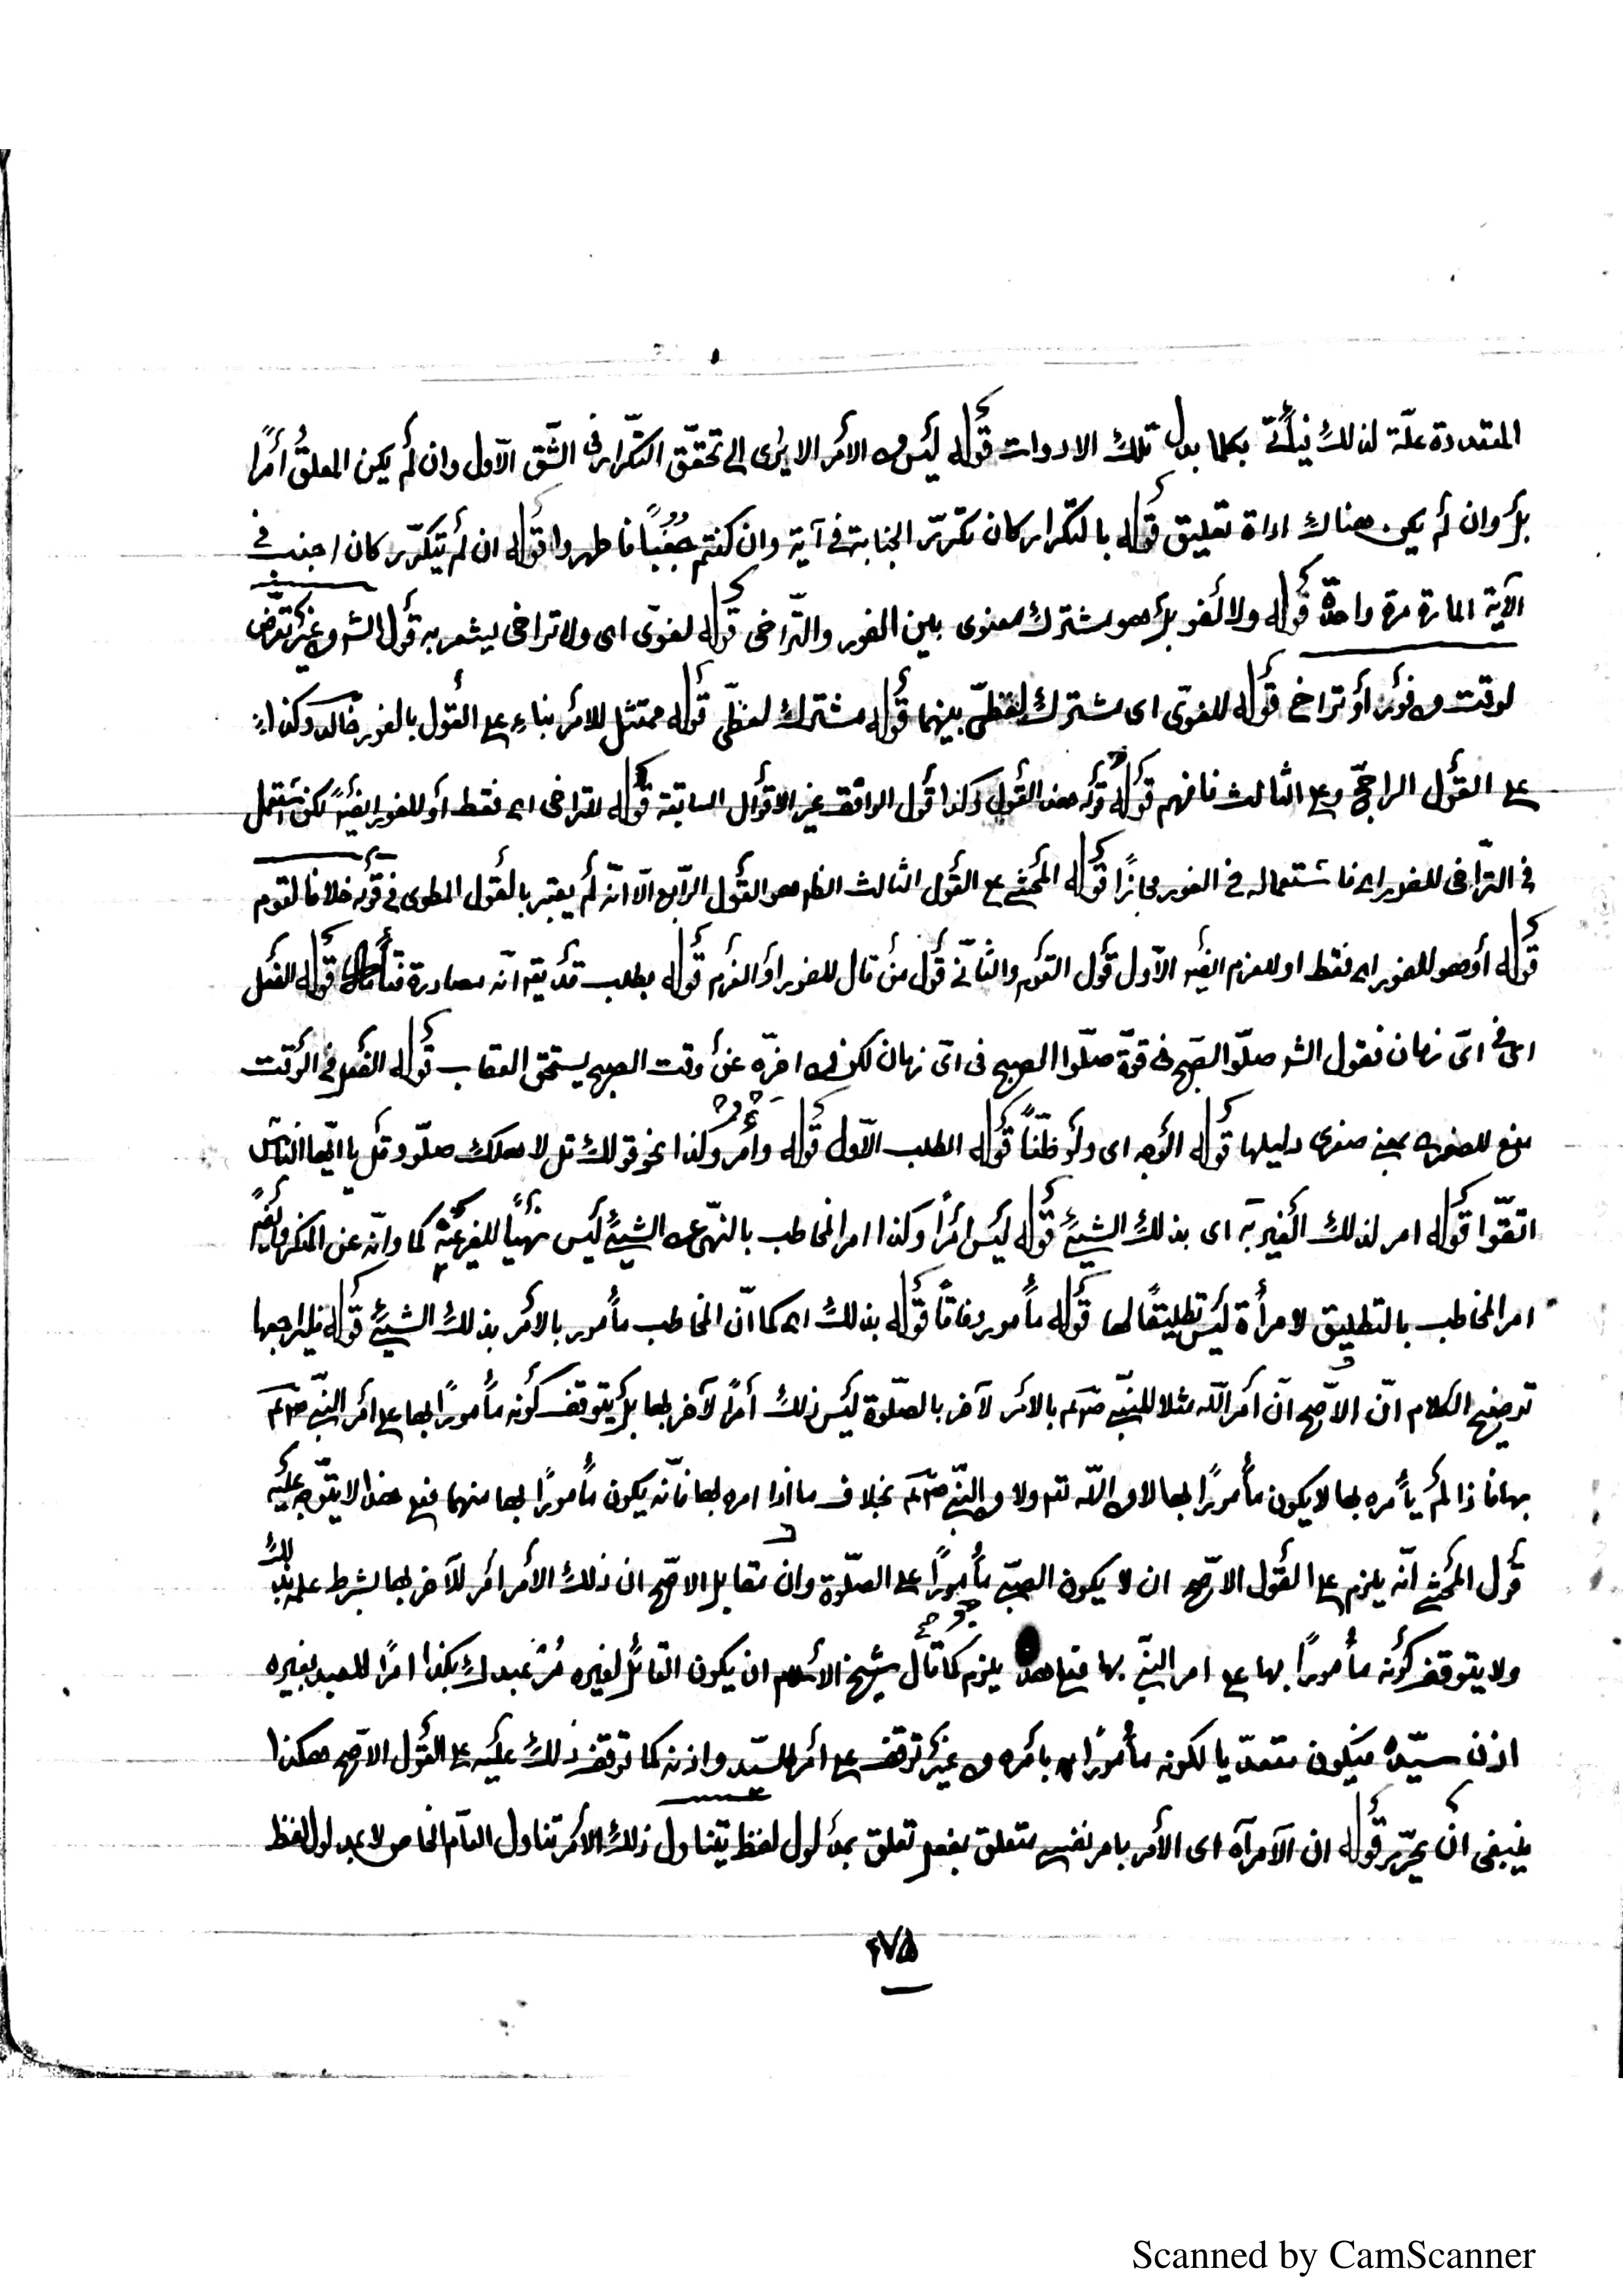 المتعددة علّة لذلك بكلما بدل تلك الادوات قوله ليس من الأمر الا يرى الى تحقّق التكّرار فى الشّق الأول وان لم يكن المعلق أمرًا
بل وان لم يكن هناك اداة تعليق قوله بالتكرار كان تكرّر الجنابة فى آية وان كنتم جنُبًا فاطهروا قوله ان لم يتكرّر كان اجنب فى
الآية المارة مرة واحدة قوله ولا لفور بل هو مشترك معنوى بين الفور والتّراخى قوله لفور اى ولا تراخى ليشعر به قول الش من غير تعرّض
لوقت من فور أو تراخ قوله للفور اى مشترك لفظىّ بينهما قوله مشترك لفظىّ قوله ممتثل للأمر بناء على القول بالفور
على القول الراجح وعلى الثالث فافهم قوله قوله هذا القول وكذا قول الواقف غير الاقوال السابقة قوله للتراخى اى فقط أو للفور ايضًا لكن استعمل
فى التّراخى للفور اى فاستعماله فى الفور مجازًا قوله المحشى على القول الثالث الظ هو القول الرّابع الّا انّه لم يعتبر بالقول المطوى فى قوله خلافا لقوم
قوله أو هو للفور اى فقط او للعزم ايضا الأول قول القوم والثّانى قول من قال للفور أو العزم قوله بطلب قد يق انّه مصادرة فتأمل قوله الفعل
اى فى اىّ زمان فقول الش صلّوا الصّبح فى قوّة صلّوا الصبح فى اىّ زمان لكن من اخّره عن وقت الصبح يستحق العقاب قوله الفعل فى الوقت
منع للصغرى يعنى صغرى دليلها قوله الوجه اى ولو ظنّاً قوله الطلب الأول قوله وأمر وكذا نحو قولك قل لاهلك صلّوا وقل يا ايّها النّاس
اتقّوا قوله امر لذلك الغير به اى بذلك الشيئ قوله ليس امراً وكذا امر المخاطب بالنهّى عن الشيئ ليس نهيًا للغير عنه كما وانه عن المنكر وأيضًا
امر المخاطب بالتطليق لامرأة ليس تطليقًا لها قوله مأمور وفاقًا قوله بذلك اى كما انّ المخاطب مأمور بالأمر بذلك الشيئ قوله فليراجعها
توضيح الكلام انّ الأصّح انّ أمر اللّه مثلا للنبّى صلّم بالامر لآخر بالصلّوة ليس ذلك أمرًا لآخر بها بل يتوقف كونه مأمورًا بها على امر النبّى صلّم
بها فاذا لم يأمره بها لا يكون مأمورًا بها لا من اللّه تع ولا من النبّى صلّم بخلاف ما اذا امره بها فانّه يكون مأمورًا بها منهما فمع هذا لا يتّوجه عليه
قول المحشى انّه يلزم على القول الاصّح ان لا يكون الصبّى مأمورًا على الصلّوة وان مقابل الاصّح ان ذلك الأمر أمر للآخر بها بشرط علمه بذلك
ولا يتوقف كونه مأمورًا بها على امر النبّى بها فمع هذا يلزم كما قال شيخ الاسلام ان يكون القائل لغيره مُر عبدك بكذا امرًا للعبد بغير
اذن سيّده فيكون متعدّيا لكونه مأمورًا بأمره من غير توقف على امر السيّد واذنه كما توقف ذلك عليه على القول الاصّح هكذا
ينبغى ان يحرّر قوله ان الآمر آه اى الأمر بامر نفسى متعلق بفعل تعلق بمدلول لفظ يتناول ذلك الأمر تناول العآم الخاص لا بمدلول لفظ
٢٧٥
Scanned by CamScanner